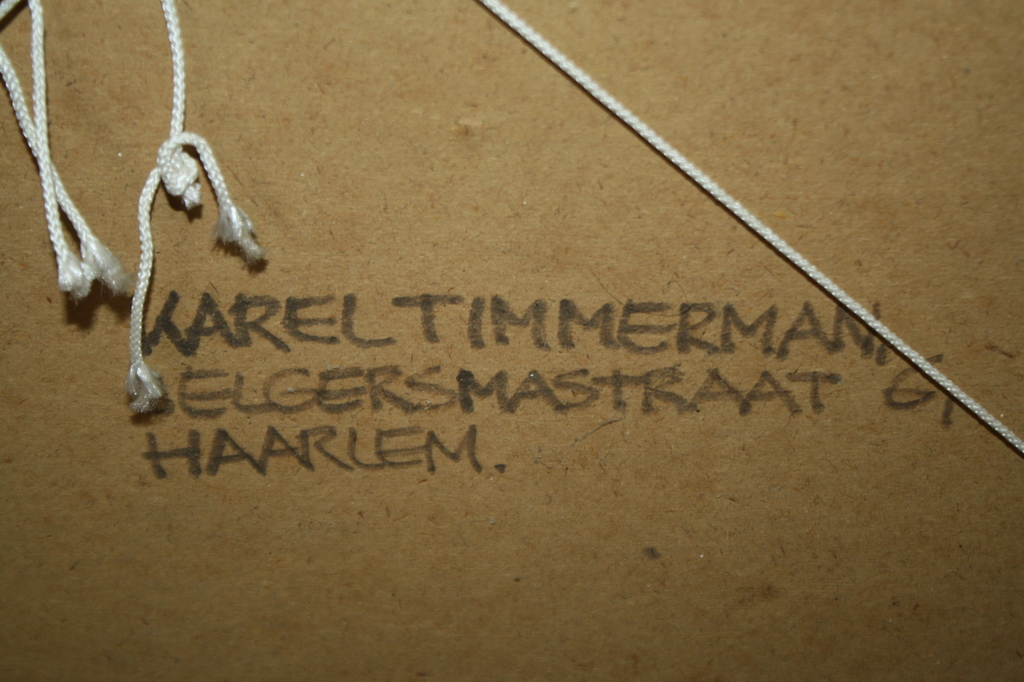 KAREL TIMMERMAN,
BELGERSMASTRAAT
HAARLEM.